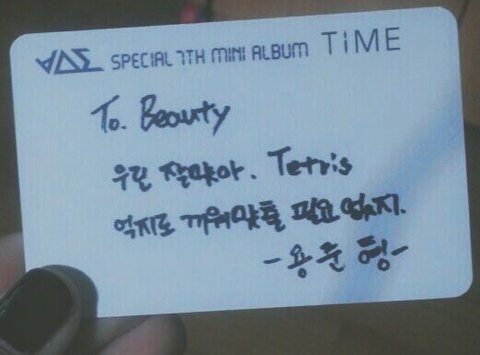 SPECIAL 7TH MINI ALBUM TiME
To. Beauty
우린 잘맞아. Tetris
억지로 끼워맞출 필요 없지.
-용준형-